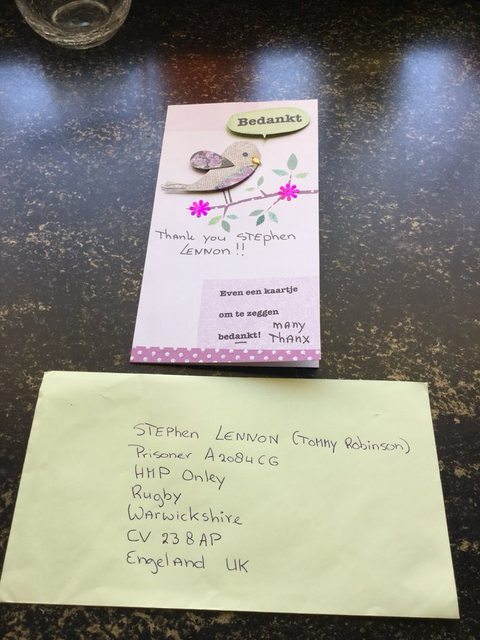 Bedankt
Thank you STEphen
LENNON !!
Even een kaartje
om te zeggen
bedankt! many
Thanx
STEPhen LENNON (Tommy Robinson)
Prisoner A2084CG
HMP Onley
Rugby
Warwickshire
CV 23 8AP
Engeland UK